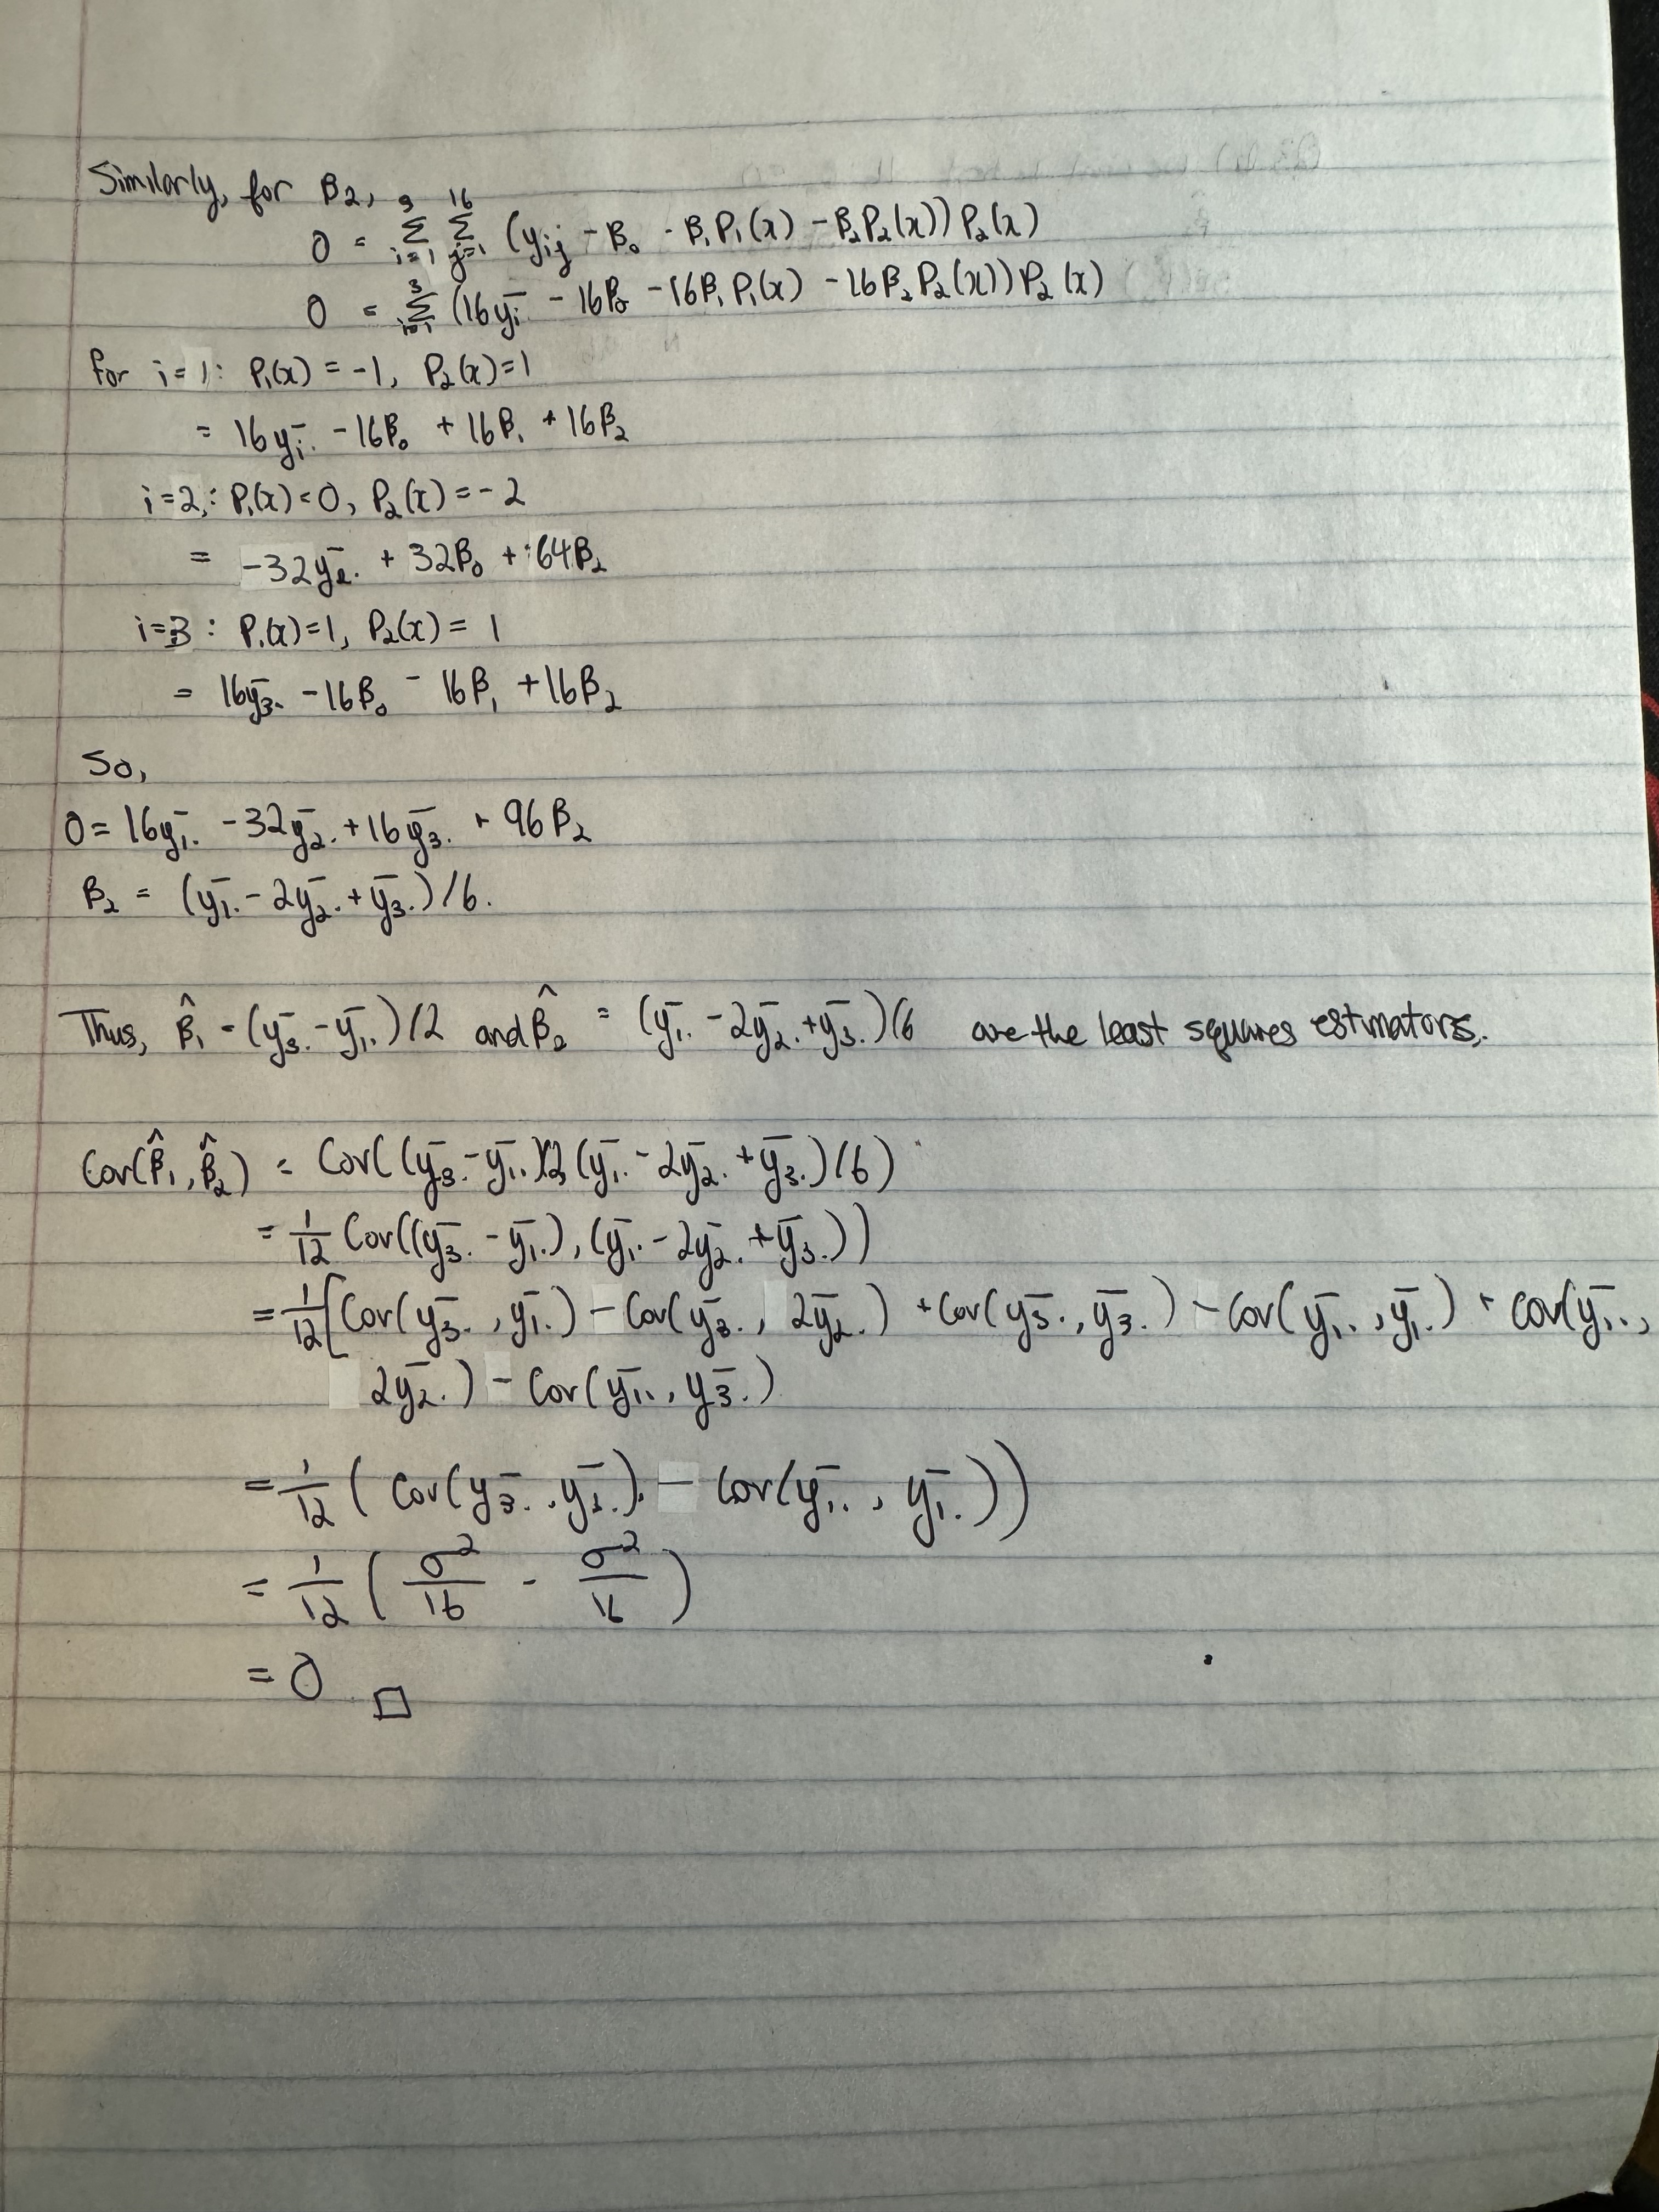 Similarly, for β₂,
0 = Σ_{i=1}^{3} Σ_{j=1}^{16} (y_{ij} - β₀ - β₁P₁(x) - β₂P₂(x))P₂(x)
0 = Σ_{i=1}^{3} (16ȳ_{i·} - 16β₀ - 16β₁P₁(x) - 16β₂P₂(x))P₂(x)
for i=1: P₁(x) = -1, P₂(x)=1
= 16ȳ_{i·} - 16β₀ + 16β₁ + 16β₂
i=2: P₁(x)=0, P₂(x)=-2
= -32ȳ_{2·} + 32β₀ + 64β₂
i=3: P₁(x)=1, P₂(x)= 1
= 16ȳ_{3·} - 16β₀ - 16β₁ + 16β₂
So,
0 = 16ȳ_{1·} - 32ȳ_{2·} + 16ȳ_{3·} + 96β₂
β₂ = (ȳ_{1·} - 2ȳ_{2·} + ȳ_{3·})/6.
Thus, β̂₁ = (ȳ_{3·} - ȳ_{1·})/2 and β̂₂ = (ȳ_{1·} - 2ȳ_{2·} + ȳ_{3·})/6 are the least squares estimators.
Cov(β̂₁, β̂₂) = Cov((ȳ_{3·} - ȳ_{1·})/2, (ȳ_{1·} - 2ȳ_{2·} + ȳ_{3·})/6)
= 1/12 Cov((ȳ_{3·} - ȳ_{1·}), (ȳ_{1·} - 2ȳ_{2·} + ȳ_{3·}))
= 1/12 [Cov(ȳ_{3·}, ȳ_{1·}) - Cov(ȳ_{3·}, 2ȳ_{2·}) + Cov(ȳ_{3·}, ȳ_{3·}) - Cov(ȳ_{1·}, ȳ_{1·}) + Cov(ȳ_{1·},
2ȳ_{2·}) - Cov(ȳ_{1·}, ȳ_{3·})
= 1/12 (Cov(ȳ_{3·}, ȳ_{3·}) - Cov(ȳ_{1·}, ȳ_{1·}))
= 1/12 (σ²/16 - σ²/16)
= 0 □